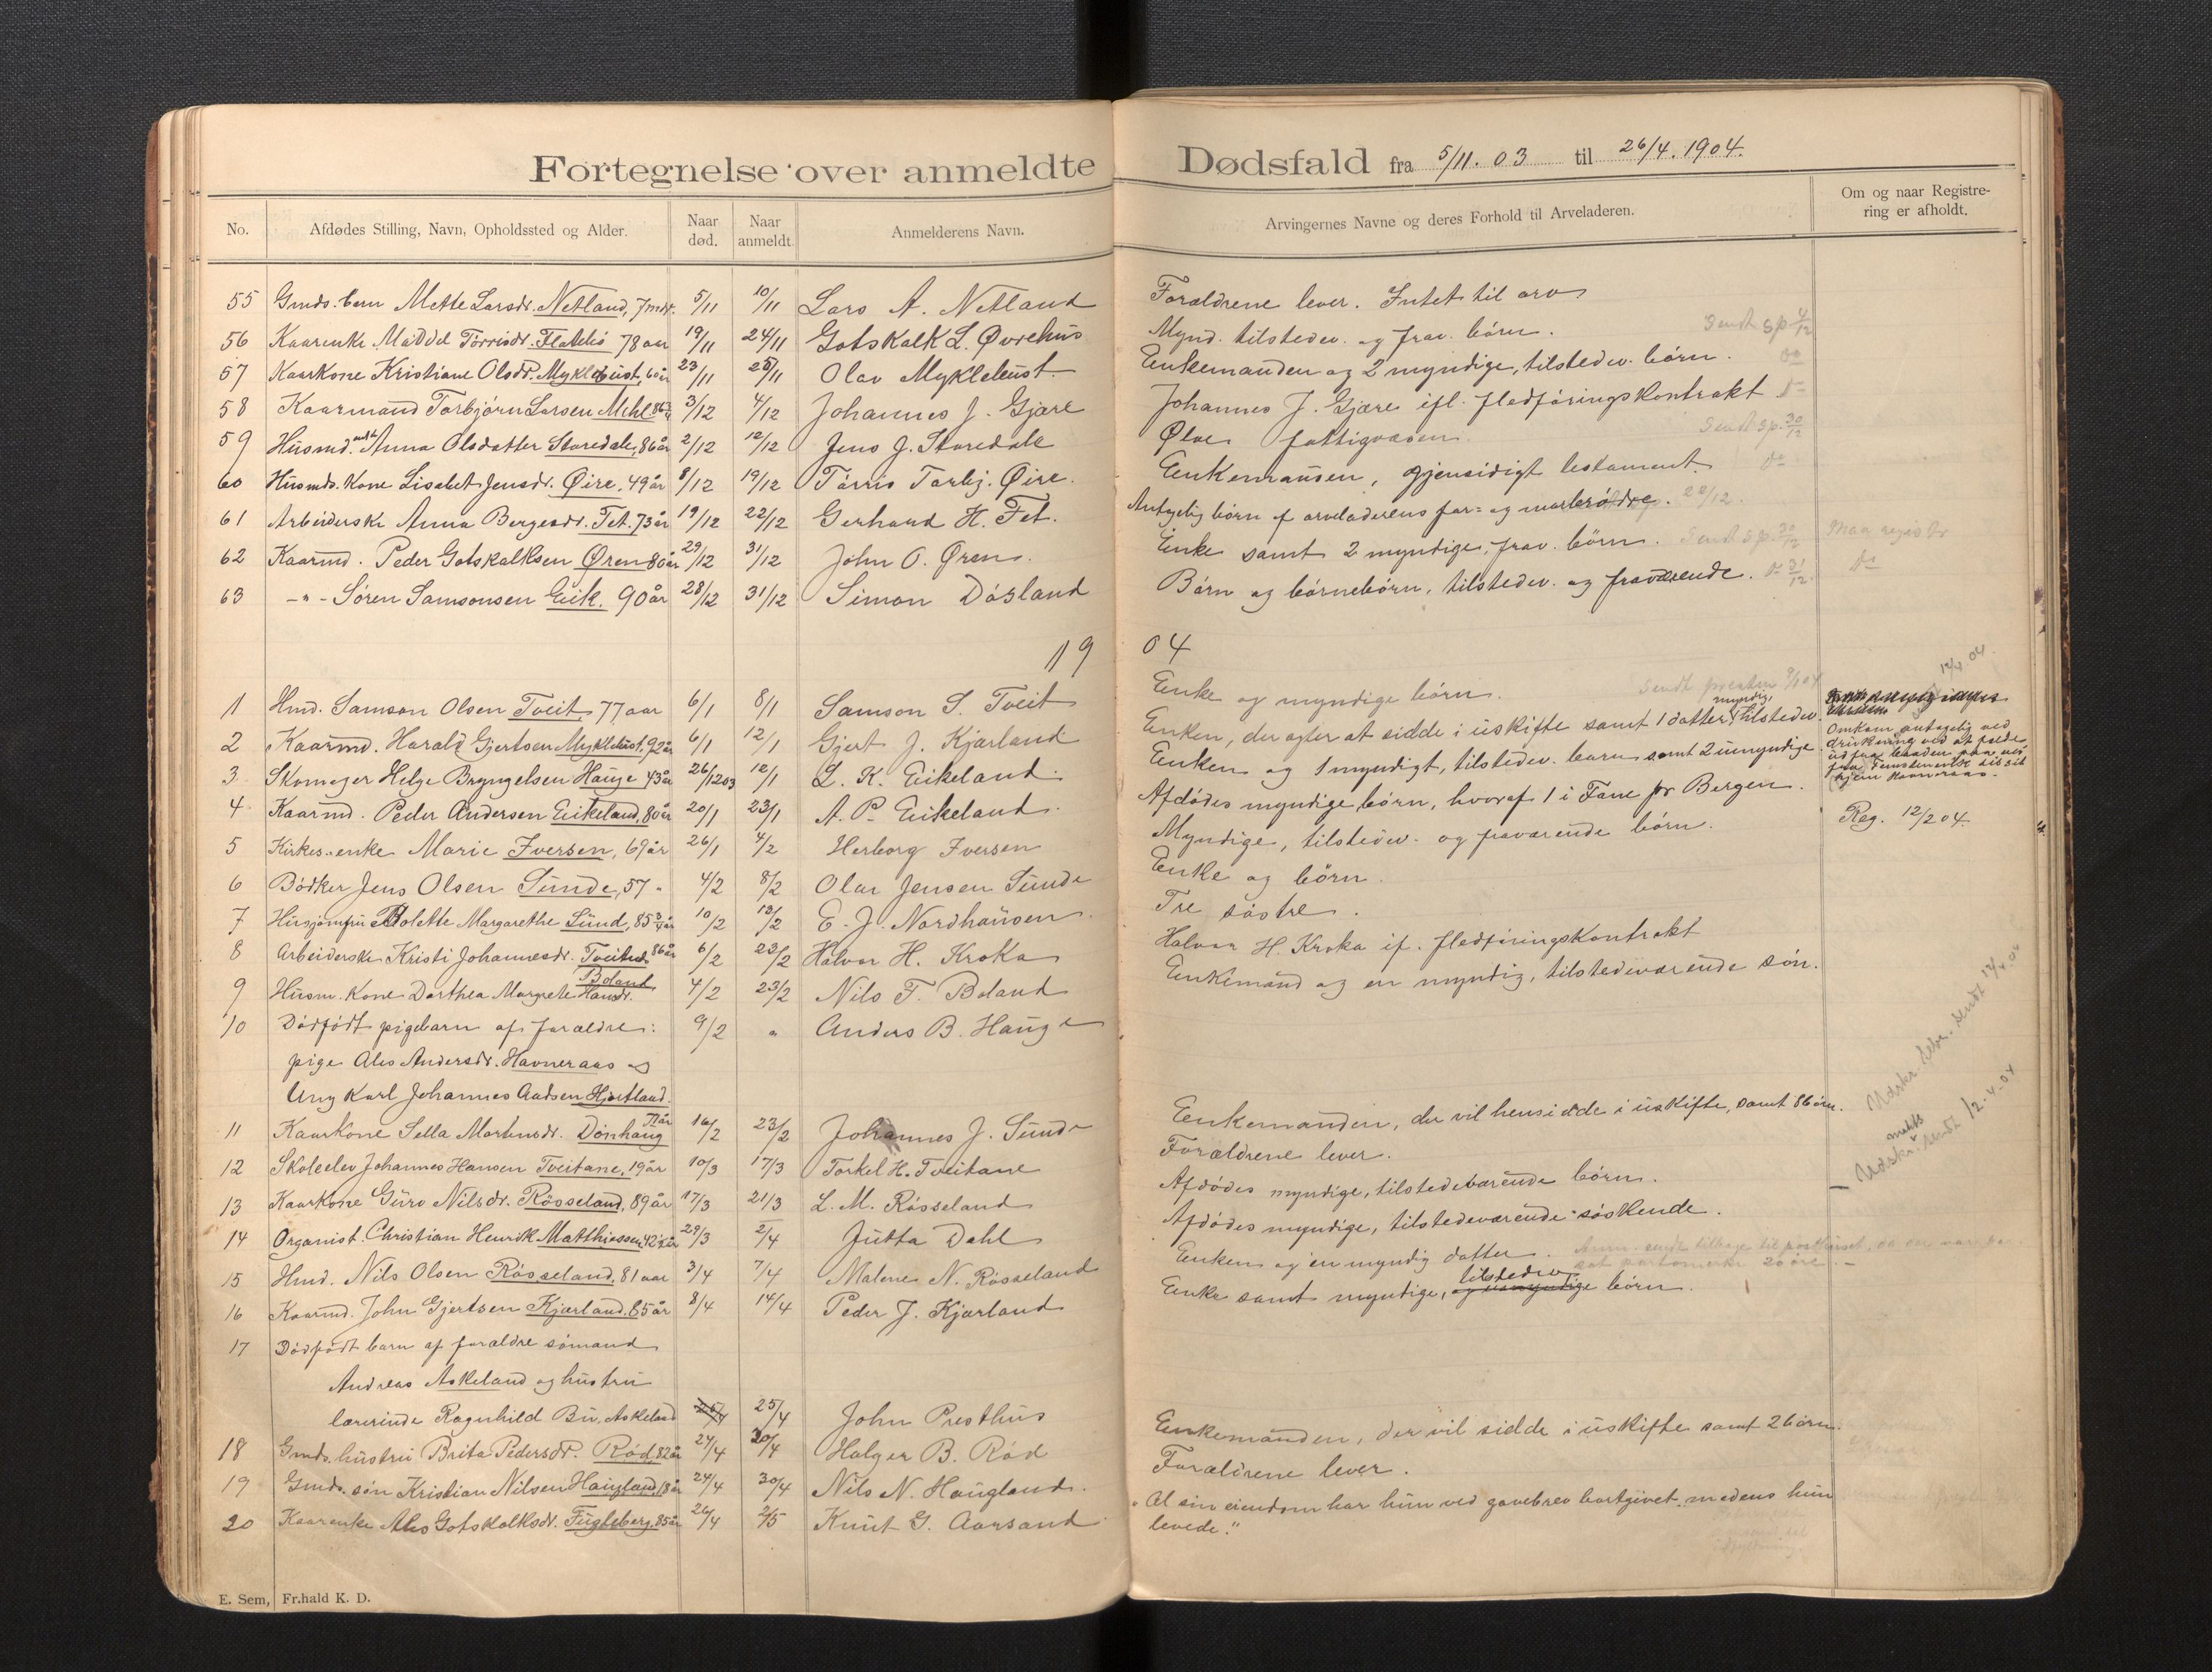 Fortegnelse over anmeldte Dødsfald fra 5/11. 03 til 26/4. 1904.
No. Afdødes Stilling, Navn, Opholdssted og Alder. Naar død. Naar anmeldt. Anmelderens Navn. Arvingernes Navne og deres Forhold til Arveladeren. Om og naar Registrering er afholdt.
55 Gmds. barn Mette Larsdr. Netland, 7 mdr. 5/11 10/11 Lars A. Netland Forældrene lever. Intet til arv
56 Kaarenke Maddel Torrisdr. Flatebø 78 aar 19/11 24/11 Gotskalk L. Øvrehus Mynd. tilstedev. og frav. børn. Sendt sp. 4/12
57 Kaarkone Kristiane Olsdr. Myklebust, 60 år 23/11 28/11 Olav Myklebust Enkemanden og 2 myndige, tilstedev. børn. do
58 Kaarmand Torbjørn Larsen Mehl 86 3/12 4/12 Johannes J. Gjære Johannes J. Gjære ifl. fledføringskontrakt do
59 Husmd. enke Anna Olsdatter Staredale, 86 år 2/12 12/12 Jens J. Staredale Ølve fattigvæsen. Sendt sp. 30/12
60 Husmds. kone Lisabet Jensdr. Øire, 49 år 8/12 19/12 Tørris Torbj. Øire. Enkemanden, gjensidigt testament do
61 Arbeiderske Anna Bergesdr. Fet. 73 år 19/12 22/12 Gerhard H. Fet. Antagelig børn af arveladerens far- og morbrødre. 28/12.
62 Kaarmd. Peder Gotskalksen Øren 80 år 29/12 31/12 John O. Øren. Enke samt 2 myndige, frav. børn. Sendt sp. 30/12 Maa regist
63 -"- Søren Samsonsen Eik. 90 år 28/12 31/12 Simon Døsland Børn og børnebørn, tilstedev. og fraværende. do 31/12. do
19 04
1 Hmd. Samson Olsen Tveit 77 aar 6/1 8/1 Samson S. Tveit Enke og myndige børn. Sendt presten 9/1 04
2 Kaarmd. Harald Gjertsen Myklebust, 92 år 6/1 12/1 Gjert J. Kjærland Enken, der agter at sidde i uskifte samt 1 datter, myndig, tilstedev.
3 Skomager Helge Bryngelsen Hauge 43 år 26/12 03 12/1 L. K. Eikeland. Enken og 1 myndigt, tilstedev. barn samt 2 umyndige
Omkom antagelig ved
drukning ved at falde
ud fra baaden paa vei
fra til sit
hjem Havneraas.
4 Kaarmd. Peder Andersen Eikeland, 80 år 20/1 23/1 A. P. Eikeland. Afdødes myndige børn, hvoraf 1 i Fane pr Bergen. Reg. 12/2 04.
5 Kirkes. enke Marie Iversen, 69 år 26/1 4/2 Herborg Iversen Myndige, tilstedev. og fraværende børn.
6 Bødker Jens Olsen Sunde, 57 " 4/2 8/2 Olav Jensen Sunde Enke og børn.
7 Husjomfru Bolette Margarethe Sund, 85 3/4 år 10/2 13/2 E. J. Nordhausen. Tre søstre.
8 Arbeiderske Kristi Johannesdr. Tveiten 86 år 6/2 23/2 Halvor H. Kroka Halvor H. Kroka if. fledføringskontrakt
9 Husm. kone Dorthea Margrete Hansdr. Boland 4/2 23/2 Nils T. Boland Enkemand og en myndig, tilstedeværende søn.
10 Dødfødt pigebarn af forældre: 9/2 " Anders B. Hauge
pige Ales Andersdr. Havneraas og
Ung Karl Johannes Aadsen Hjortland.
11 Kaarkone Sella Martinsdr. Dønhaug 16/2 23/2 Johannes J. Sunde Enkemanden, der vil hensidde i uskifte, samt 8 børn.
12 Skoleelev Johannes Hansen Tveitane, 19 år 10/3 17/3 Torkel H. Tveitane Forældrene lever.
13 Kaarkone Guro Nilsdr. Røsseland, 89 år 17/3 21/3 L. M. Røsseland Afdødes myndige, tilstedeværende børn.
14 Organist Christian Henrik Matthiessen, 42 1/2 år 29/3 2/4 Jutta Dahl Afdødes myndige, tilstedeværende søskende.
15 Hmd. Nils Olsen Røsseland, 81 aar 3/4 7/4 Malene N. Røsseland Enken og en myndig datter.
16 Kaarmd. John Gjertsen Kjærland, 85 år 8/4 14/4 Peder J. Kjærland Enke samt myndige, tilstedev og umyndige børn.
Udskr. sendt 12/4 04
Udskr. sendt 12.4.04
17 Dødfødt barn af forældre sømand
Andreas Askeland og hustru
lærerinde Ragnhild Bu, Askeland 25/4 25/4 John Presthus
18 Gmds. hustru Brita Pedersdr. Rød 82 år 24/4 30/4 Holger B. Rød Enkemanden, der vil sidde i uskifte samt 2 børn.
19 Gmds. søn Kristian Nilsen Haugland, 18 år 24/4 30/4 Nils N. Haugland. Forældrene lever.
20 Kaarenke Ales Gotskalksdr. Fugleberg, 85 år 26/4 2/5 Knut G. Aarsand "Al sin eiendom har hun ved gavebrev bortgivet, medens hun
levede."
E. Sem, Fr.hald K. D.